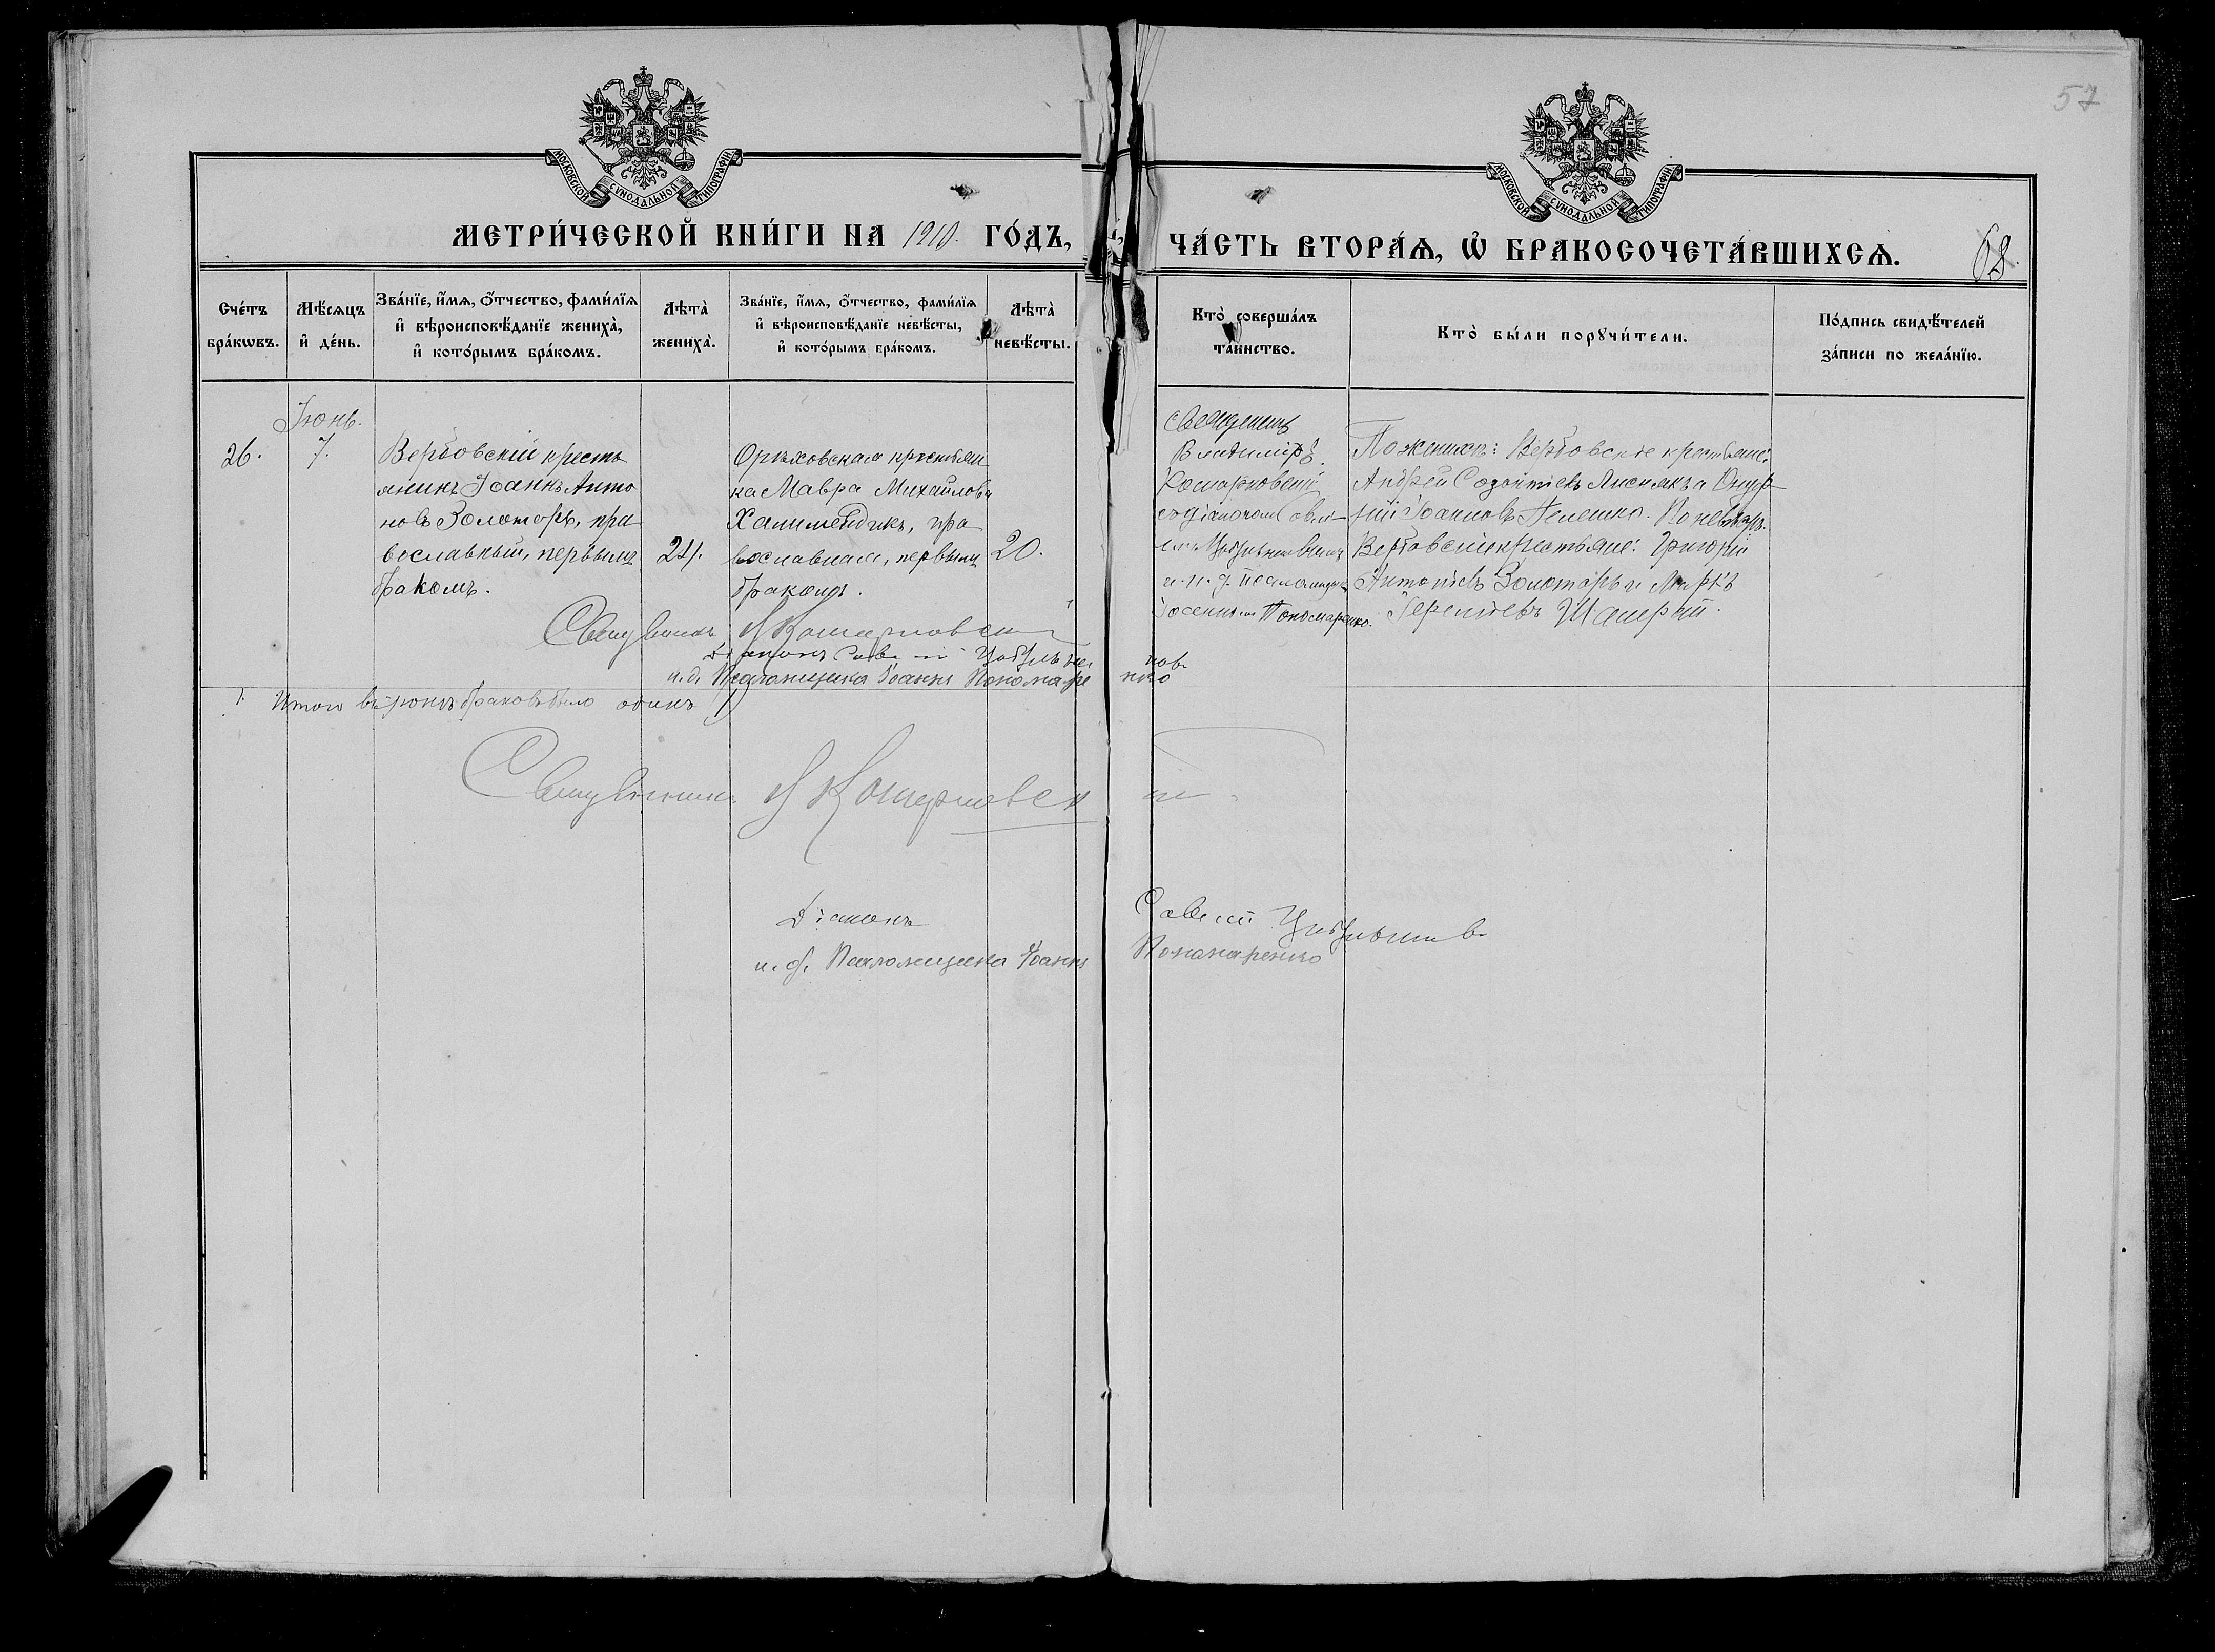 57
МОСКОВСКОЙ СѴНОДАЛЬНОЙ ТИПОГРАФІИ
МОСКОВСКОЙ СѴНОДАЛЬНОЙ ТИПОГРАФІИ
МЕТРИ́ЧЕСКОЙ КНИ́ГИ НА 1910. ГО́ДЪ,
ЧА́СТЬ ВТОРА́Ѧ, Ѡ҆ БРАКОСОЧЕТА́ВШИХСѦ.
68.
Сче́тъ бра́кѡвъ.
Мѣ́сѧцъ и҆ де́нь.
Зва́нїе, и҆́мѧ, ѻ҆́тчество, фами́лїѧ и҆ вѣроисповѣ́данїе жениха̀, и҆ кото́рымъ бра́комъ.
Лѣта̀ жениха̀.
Зва́нїе, и҆́мѧ, ѻ҆́тчество, фами́лїѧ и҆ вѣроисповѣ́данїе невѣ́сты, и҆ кото́рымъ бра́комъ.
Лѣта̀ невѣ́сты.
Кто̀ соверша́лъ та́инство.
Кто̀ бы́ли порꙋчи́тели.
По́дпись свидѣ́телей за́писи по жела́нїю.
26.
Іюнь.
7.
Вербовскій кресть
янинъ Іоаннъ Анто
новъ Золотарь, пра
вославный, первымъ
бракомъ.
24.
Орѣховская крестьян
ка Мавра Михайлова
Халимендикъ, пра
вославная, первымъ
бракомъ.
20.
Священникъ
Владиміръ
Комарновскій
съ діакономъ
и. д. псаломщика
Пономаренко.
По женихѣ: Вербовскіе крестьяне:
Андрей Созонтіевъ Лисиякъ и Онуф
рій Іоанновъ Телешко. По невѣстѣ:
Вербовскіе крестьяне: Григорій
Антоніевъ Золотарь и Маркъ
Терентіевъ Шамрай.
Священникъ В Комарновскій
Діаконъ
и. д. Псаломщика Іоаннъ Пономаренко
1. Итого въ іюнѣ браковъ было одинъ
Священникъ В Комарновскій
Діаконъ
и. д. Псаломщика Іоаннъ Пономаренко